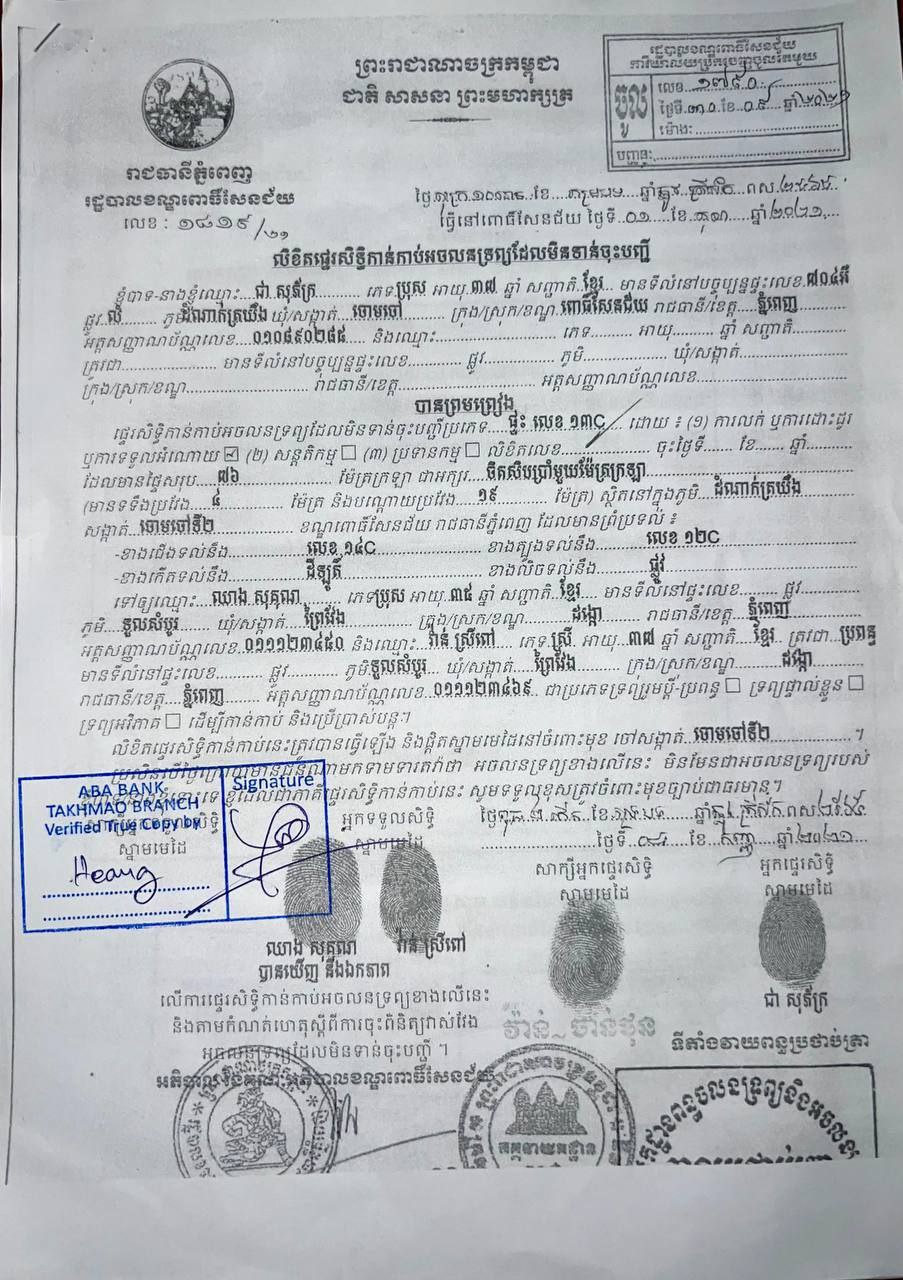 ព្រះរាជាណាចក្រកម្ពុជា
ជាតិ សាសនា ព្រះមហាក្សត្រ
រដ្ឋបាលខណ្ឌពោធិ៍សែនជ័យ
ការិយាល័យច្រកចេញចូលតែមួយ
ចូល
លេខ ១៧៩០
ថ្ងៃទី ៣០ ខែ ០៩ ឆ្នាំ ២០២១
ម៉ោង:
បញ្ជូន:
រាជធានីភ្នំពេញ
រដ្ឋបាលខណ្ឌពោធិ៍សែនជ័យ
លេខ : ១៨១៩/២១
ធ្វើនៅពោធិ៍សែនជ័យ ថ្ងៃទី ០១ ខែ តុលា ឆ្នាំ ២០២១
លិខិតផ្ទេរសិទ្ធិកាន់កាប់អចលនទ្រព្យដែលមិនទាន់ចុះបញ្ជី
ខ្ញុំបាទ-នាងខ្ញុំឈ្មោះ ជា សុភ័ក្រ ភេទ ប្រុស អាយុ ៣៧ ឆ្នាំ សញ្ជាតិ ខ្មែរ មានទីលំនៅបច្ចុប្បន្នផ្ទះលេខ ៧០៤អឺ
ផ្លូវ លំ ភូមិ ដំណាក់ត្រយឹង ឃុំ/សង្កាត់ ចោមចៅ ក្រុង/ស្រុក/ខណ្ឌ ពោធិ៍សែនជ័យ រាជធានី/ខេត្ត ភ្នំពេញ
អត្តសញ្ញាណប័ណ្ណលេខ ០១០៨៩០២៨៥ និងឈ្មោះ ភេទ អាយុ ឆ្នាំ សញ្ជាតិ
ត្រូវជា មានទីលំនៅបច្ចុប្បន្នផ្ទះលេខ ផ្លូវ ភូមិ ឃុំ/សង្កាត់
ក្រុង/ស្រុក/ខណ្ឌ រាជធានី/ខេត្ត អត្តសញ្ញាណប័ណ្ណលេខ
បានព្រមព្រៀង
ផ្ទេរសិទ្ធិកាន់កាប់អចលនទ្រព្យដែលមិនទាន់ចុះបញ្ជីប្រភេទ ផ្ទះ លេខ ១៣C ដោយ ៖ (១) ការលក់ ឬការដោះដូរ
ឬការទទួលអំណោយ ☑ (២) សន្តតិកម្ម ☐ (៣) ប្រទានកម្ម ☐ លិខិតលេខ ចុះថ្ងៃទី ខែ ឆ្នាំ
ដែលមានផ្ទៃសរុប ៧៦ ម៉ែត្រក្រឡា ជាអក្សរ ចិតសិបប្រាំមួយម៉ែត្រក្រឡា
(មានទទឹងប្រវែង ៤ ម៉ែត្រ និងបណ្តោយប្រវែង ១៩ ម៉ែត្រ) ស្ថិតនៅក្នុងភូមិ ដំណាក់ត្រយឹង
សង្កាត់ ចោមចៅទី២ ខណ្ឌពោធិ៍សែនជ័យ រាជធានីភ្នំពេញ ដែលមានព្រំប្រទល់ ៖
-ខាងជើងទល់នឹង លេខ ១៤C ខាងត្បូងទល់នឹង លេខ ១២C
-ខាងកើតទល់នឹង ដីឡូត៍ ខាងលិចទល់នឹង ផ្លូវ
ទៅឲ្យឈ្មោះ ឈាង សុគុណ ភេទ ប្រុស អាយុ ៣៥ ឆ្នាំ សញ្ជាតិ ខ្មែរ មានទីលំនៅផ្ទះលេខ ផ្លូវ
ភូមិ ទួលសំបូរ ឃុំ/សង្កាត់ ព្រៃវែង ក្រុង/ស្រុក/ខណ្ឌ ដង្កោ រាជធានី/ខេត្ត ភ្នំពេញ
អត្តសញ្ញាណប័ណ្ណលេខ ០១១១២៣៤៥០ និងឈ្មោះ វ៉ាន់ ស្រីពៅ ភេទ ស្រី អាយុ ៣៧ ឆ្នាំ សញ្ជាតិ ខ្មែរ ត្រូវជា ប្រពន្ធ
មានទីលំនៅផ្ទះលេខ ផ្លូវ ភូមិ ទួលសំបូរ ឃុំ/សង្កាត់ ព្រៃវែង ក្រុង/ស្រុក/ខណ្ឌ ដង្កោ
រាជធានី/ខេត្ត ភ្នំពេញ អត្តសញ្ញាណប័ណ្ណលេខ ០១១១២៣៤៦៩ ជាប្រភេទទ្រព្យរួមប្តី-ប្រពន្ធ ☐ ទ្រព្យផ្ទាល់ខ្លួន ☐
ទ្រព្យអវិភាគ ☐ ដើម្បីកាន់កាប់ និងប្រើប្រាស់បន្ត។
លិខិតផ្ទេរសិទ្ធិកាន់កាប់នេះត្រូវបានធ្វើឡើង និងផ្តិតស្នាមមេដៃនៅចំពោះមុខ ចៅសង្កាត់ ចោមចៅទី២ ។
ប្រសិនបើថ្ងៃក្រោយមានជនណាមកទាមទារតវ៉ាថា អចលនទ្រព្យខាងលើនេះ មិនមែនជាអចលនទ្រព្យរបស់
ខ្ញុំដែលជាភាគីផ្ទេរសិទ្ធិកាន់កាប់នេះ សូមទទួលខុសត្រូវចំពោះមុខច្បាប់ជាធរមាន។
ABA BANK
TAKHMAO BRANCH
Verified True Copy by
Signature
Heang
ស្នាមមេដៃ
អ្នកទទួលសិទ្ធិ
ស្នាមមេដៃ
ថ្ងៃទី ០៨ ខែ កញ្ញា ឆ្នាំ ២០២១
សាក្សីអ្នកផ្ទេរសិទ្ធិ
ស្នាមមេដៃ
អ្នកផ្ទេរសិទ្ធិ
ស្នាមមេដៃ
ឈាង សុគុណ វ៉ាន់ ស្រីពៅ
ជា សុភ័ក្រ
បានឃើញ និងឯកភាព
លើការផ្ទេរសិទ្ធិកាន់កាប់អចលនទ្រព្យខាងលើនេះ
និងតាមកំណត់ហេតុស្តីពីការចុះពិនិត្យវាស់វែង
អចលនទ្រព្យដែលមិនទាន់ចុះបញ្ជី ។
ទីតាំងវាយពន្ធប្រថាប់ត្រា